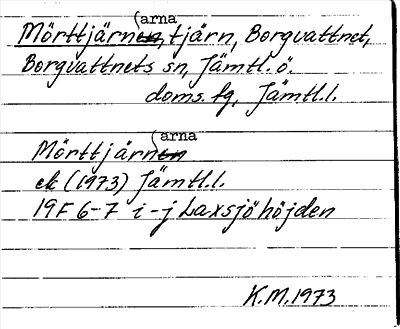 Mörttjärnarna, tjärn, Borgvattnet,
Borgvattnets sn, Jämtl. ö.
doms. fg, Jämtl.l.
Mörttjärnarna
ek (1973) Jämtl.l.
19F 6-7 i-j Laxsjöhöjden
K.M.1973